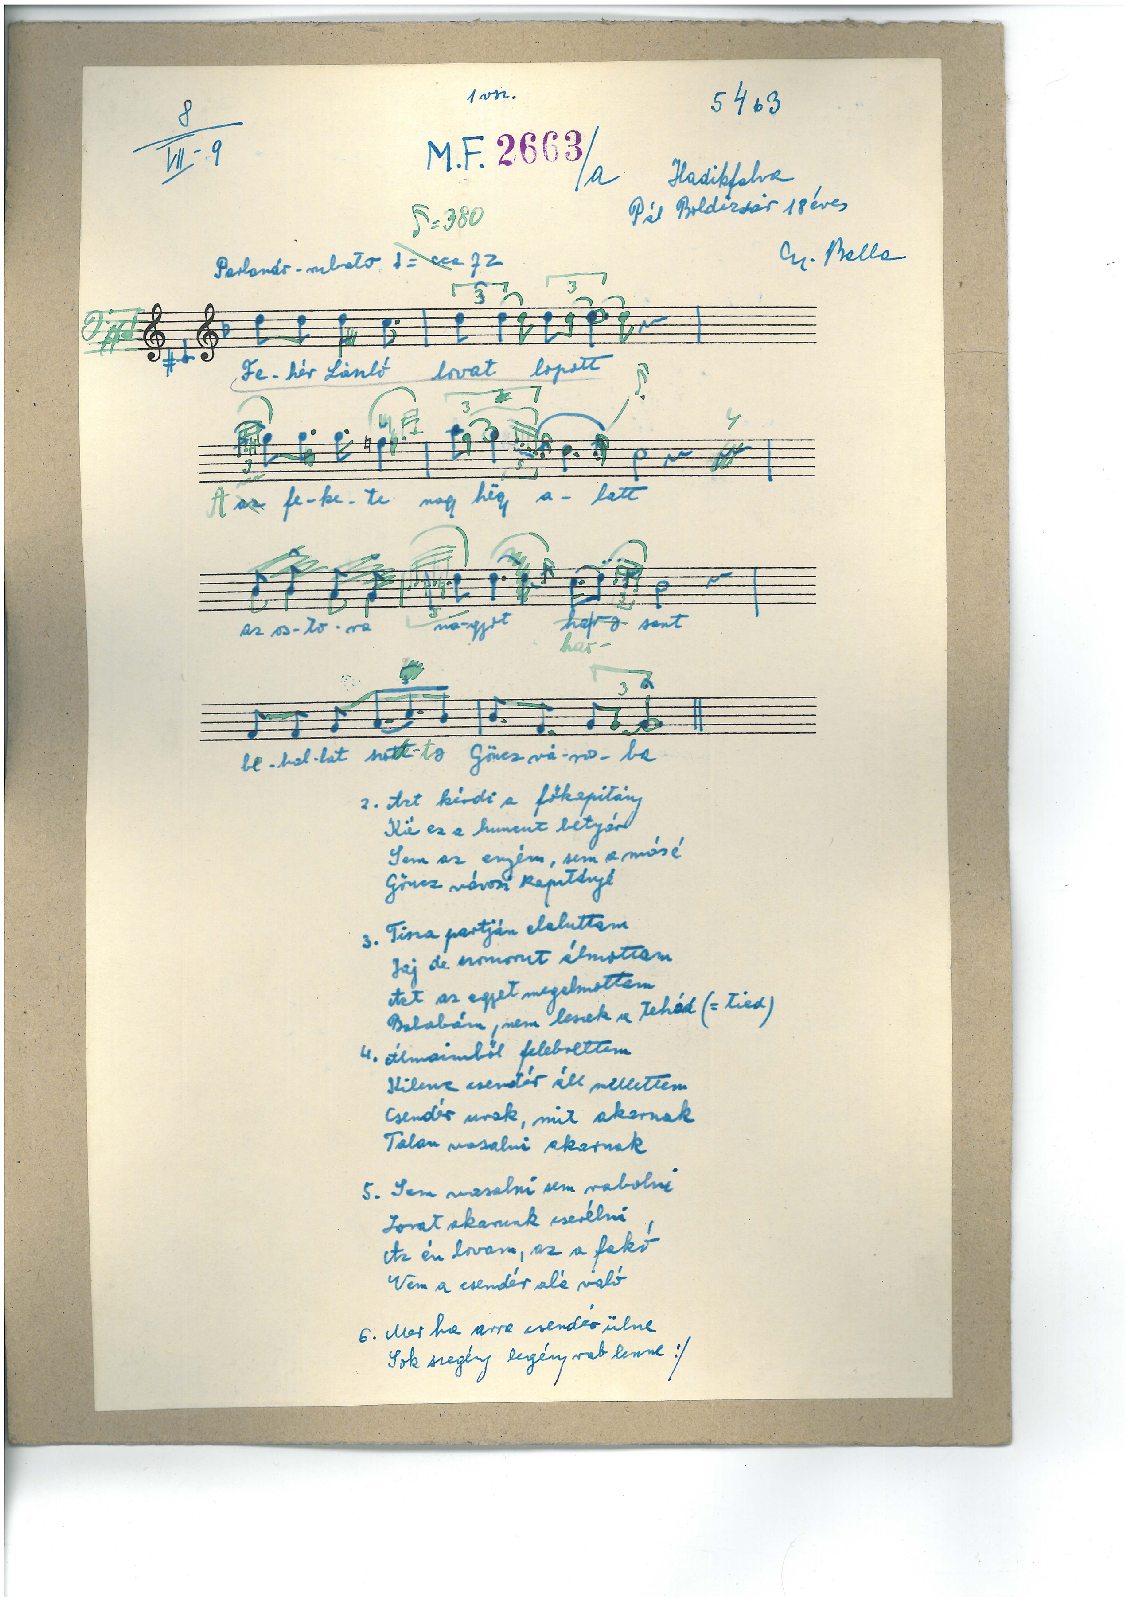 1 vsz.
5463
8
VII-9
M.F. 2663/a
Hadikfalva
Pál Boldizsár 18 éves
Gy. Balla
♪=380
Parlando-rubato ♩= cca 72
Fe-hér László lovat lopott
A az fe-ke-te nagy hëgy a-latt
az os-to-ra na-gyot har- sant
be-hal-lat szott-to Göncz vá-ros-ba
2. Azt kérdi a főkapitány
Kié ez a huncut betyár
Sem az enyém, sem a másé
Göncz városi kapitányé
3. Tisza partján elaluttam
Jaj de szomorut álmottam
Azt az egyet megalmottam
Bababám, nem leszek a tehéd (= tied)
4. Álmaimból felebrettem
Kilenc csendér áll mellettem
Csendér urak, mit akarnak
Talan vasalni akarnak
5. Sem vasalni sem rabolni
Lovat akarunk cserélni,
Az én lovam, az a fakó
Nem a csendér alá való
6. Mer ha arra csendér ülne
Sok szegény legény rab lenne :/